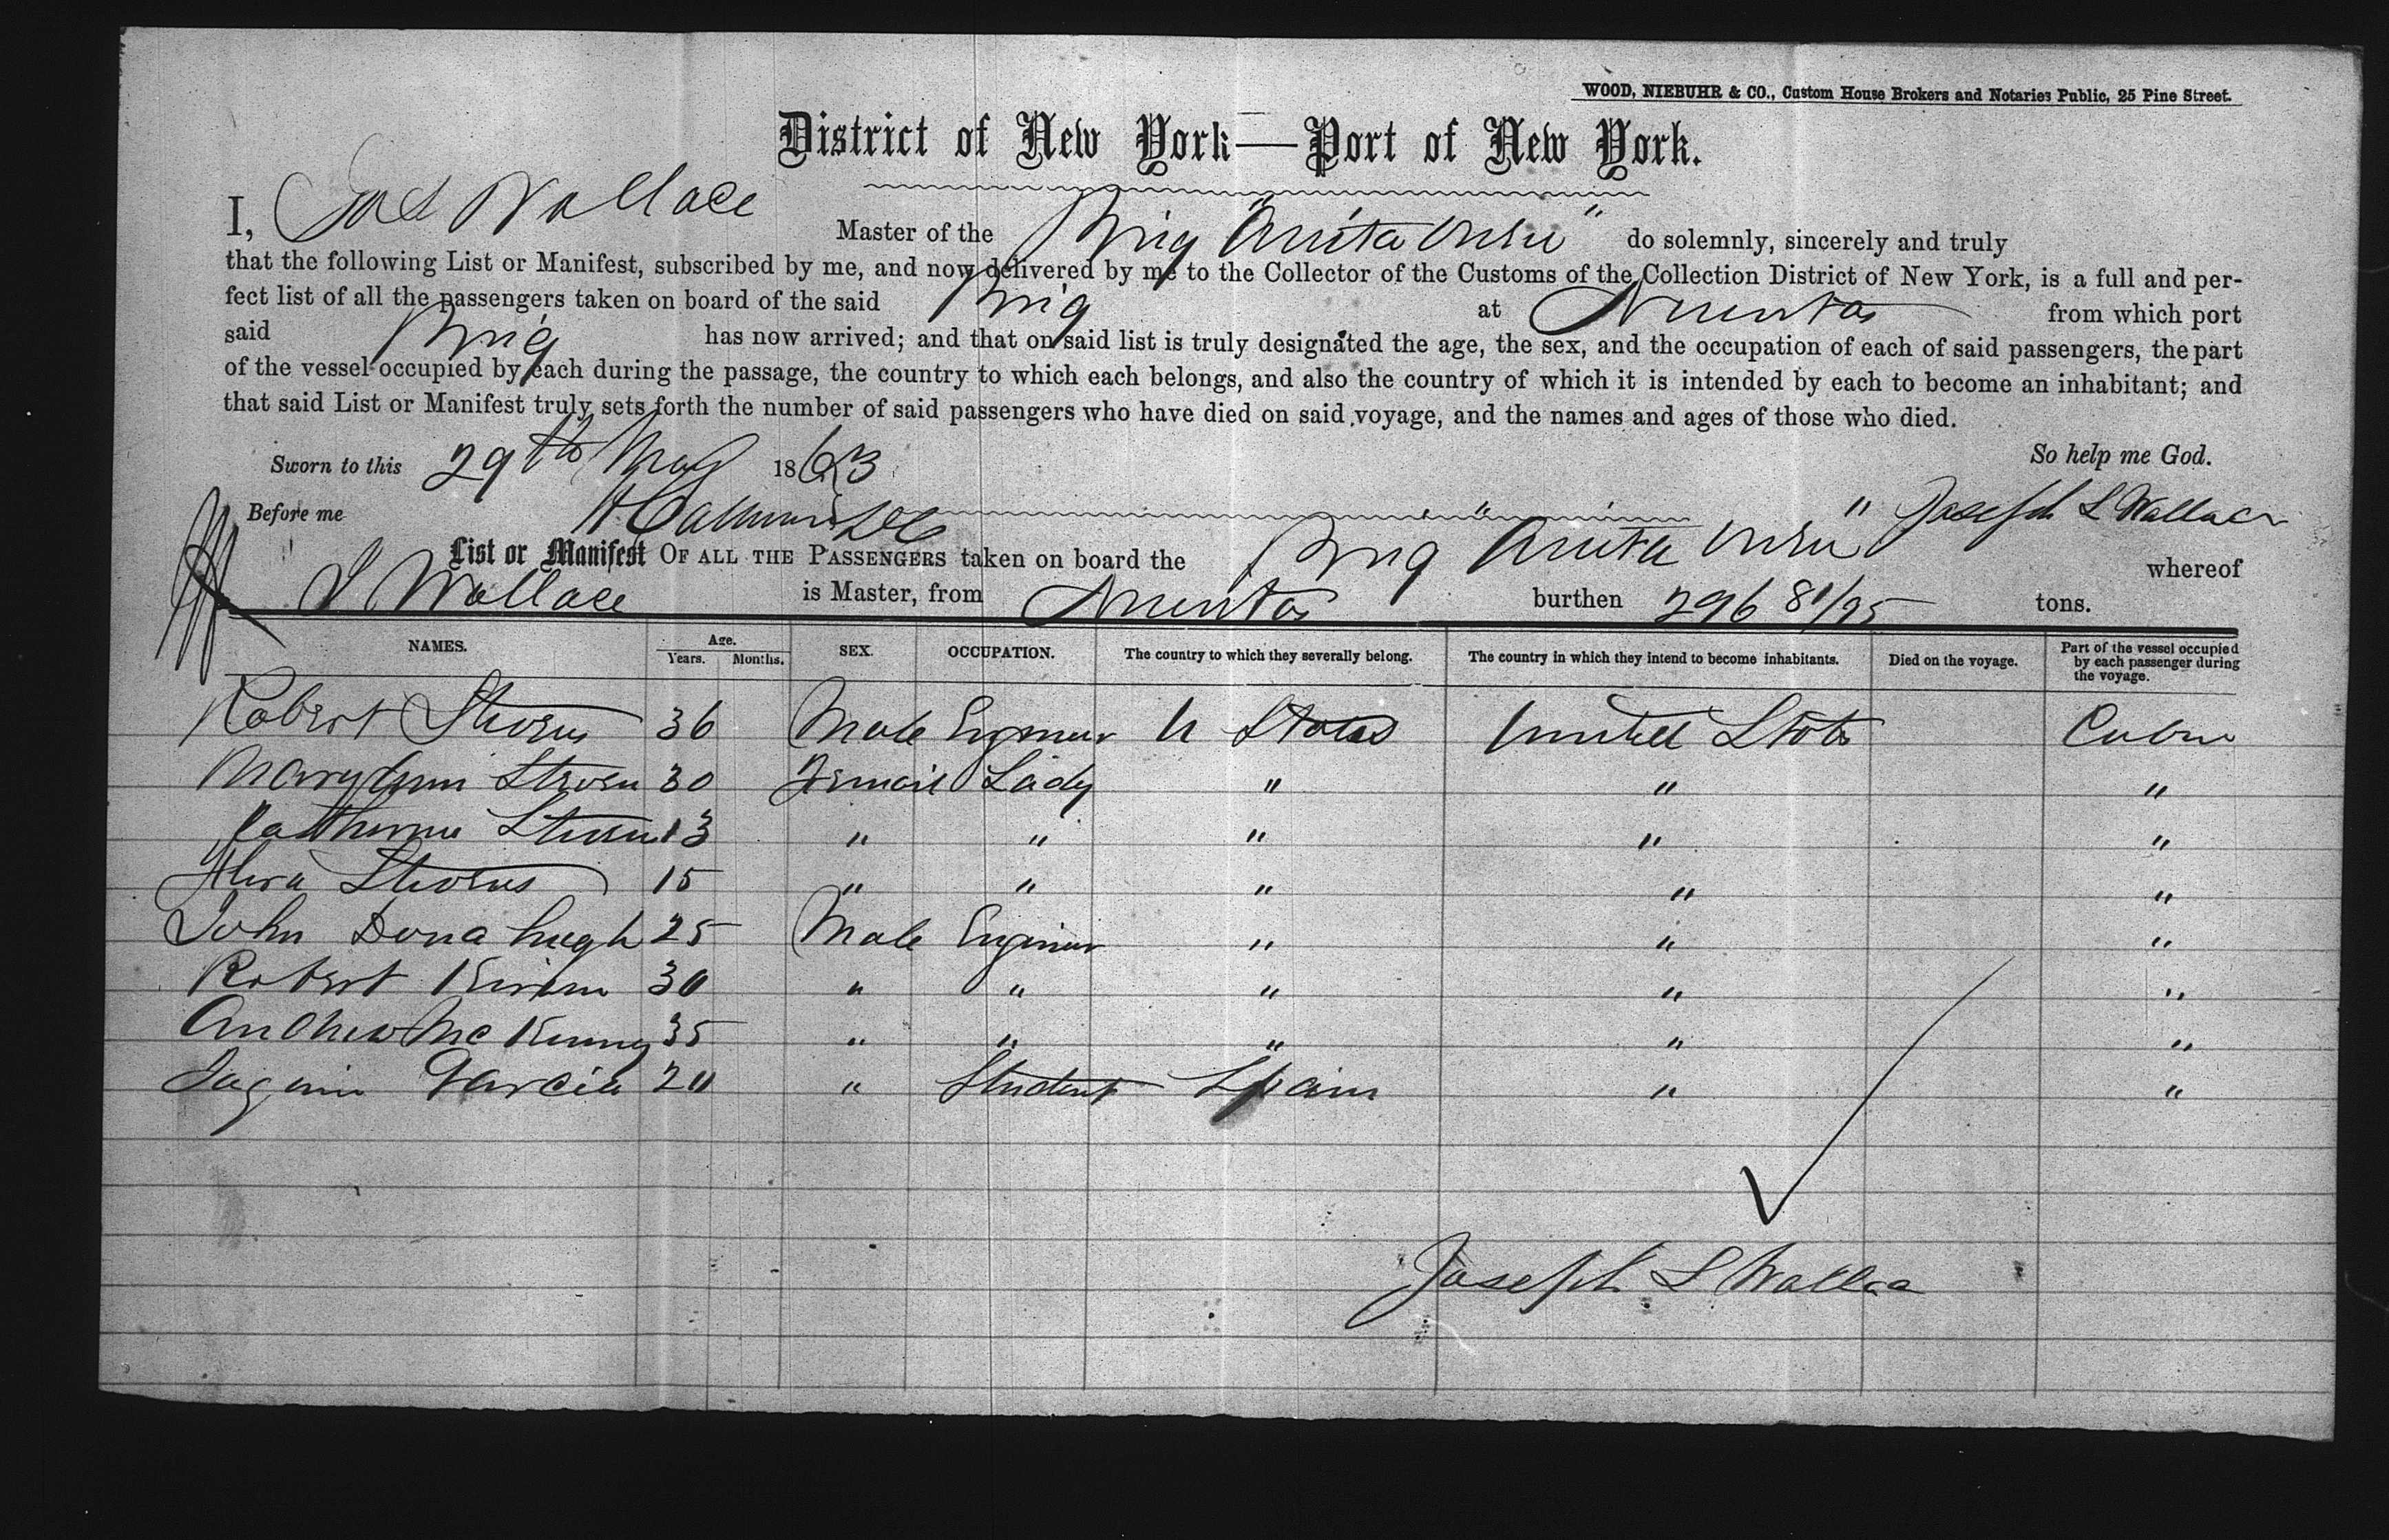 WOOD, NIEBUHR & CO., Custom House Brokers and Notaries Public, 25 Pine Street.
District of New York—Port of New York.
I, Jos Wallace Master of the Brig "Anita do solemnly, sincerely and truly
that the following List or Manifest, subscribed by me, and now delivered by me to the Collector of the Customs of the Collection District of New York, is a full and per-
fect list of all the passengers taken on board of the said Brig at Nuevitas from which port
said Brig has now arrived; and that on said list is truly designated the age, the sex, and the occupation of each of said passengers, the part
of the vessel occupied by each during the passage, the country to which each belongs, and also the country of which it is intended by each to become an inhabitant; and
that said List or Manifest truly sets forth the number of said passengers who have died on said voyage, and the names and ages of those who died.
Sworn to this 29th May 1863 So help me God.
Before me Joseph L Wallace
List or Manifest OF ALL THE PASSENGERS taken on board the Brig "Anita whereof
J Wallace is Master, from Nuevitas burthen 296 81/95 tons.
NAMES. Age. Years. Months. SEX. OCCUPATION. The country to which they severally belong. The country in which they intend to become inhabitants. Died on the voyage. Part of the vessel occupied by each passenger during the voyage.
Robert Stevens 36 Male Engineer U States United States Cabin
Mary Ann Stevens 30 Female Lady " " "
Catherine Stevens 13 " " " " "
Stevens 15 " " " " "
John Donahugh 25 Male Engineer " " "
Robert 30 " " " " "
Andrew McKenney 35 " " " " "
Garcia 20 " Student Spain " "
Joseph L Wallace